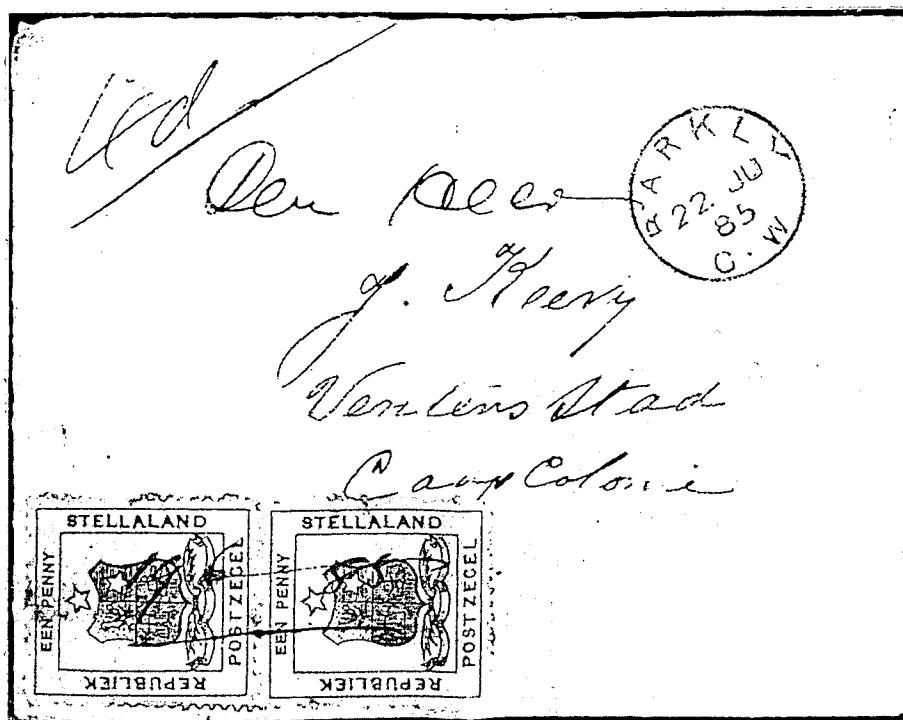 Den Heer
J. Keevy
Venters Stad
Caap Colonie
BARKLY
22 JU
85
C.W
STELLALAND
EEN PENNY
POSTZEGEL
REPUBLIEK
STELLALAND
EEN PENNY
POSTZEGEL
REPUBLIEK